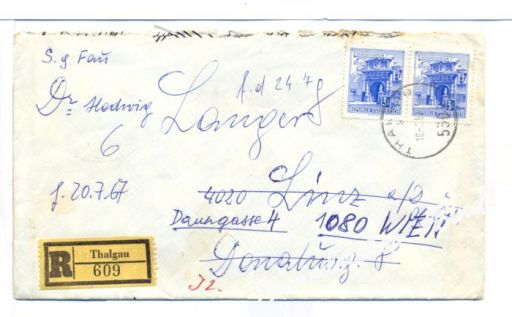 S. g Frau
f. d 24 7
Dr. Hedwig
6 Langer
f. 20.7.67
4020 Linz a/D
Daungasse 4 1080 WIEN
R Thalgau
609
J2.
THAL
53
REPUBLIK ÖSTERREICH
REPUBLIK ÖSTERREICH